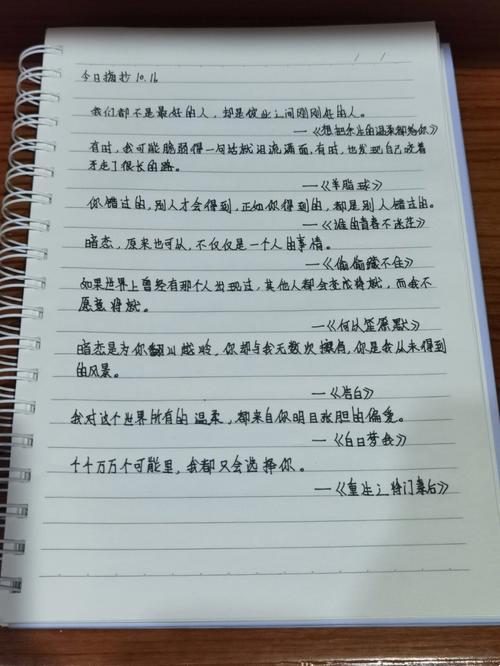 今日摘抄10.16
我们都不是最好的人，却是彼此之间刚刚好的人。
—《想把余生的温柔都给你》
有时，我可能脆弱得一句话就泪流满面，有时，也发现自己咬着
牙走了很长的路。
—《羊脂球》
你错过的，别人才会得到，正如你得到的，都是别人错过的。
—《谁的青春不迷茫》
暗恋，原来也可从，不仅仅是一个人的事情。
—《偷偷藏不住》
如果世界上曾经有那个人出现过，其他人都会变成将就，而我不
愿意将就。
—《何以笙箫默》
暗恋是为你翻山越岭，你却与我无数次擦肩，你是我从未得到
的风景。
—《告白》
我对这个世界所有的温柔，都来自你明目张胆的偏爱。
—《白日梦我》
千千万万个可能里，我都只会选择你。
—《重生之将门毒后》